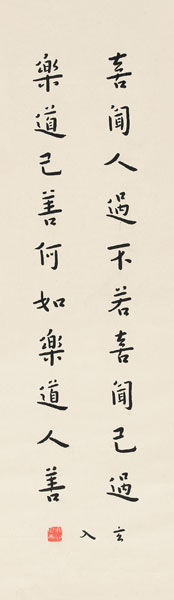 喜聞人過不若喜聞己過
樂道己善何如樂道人善
玄入